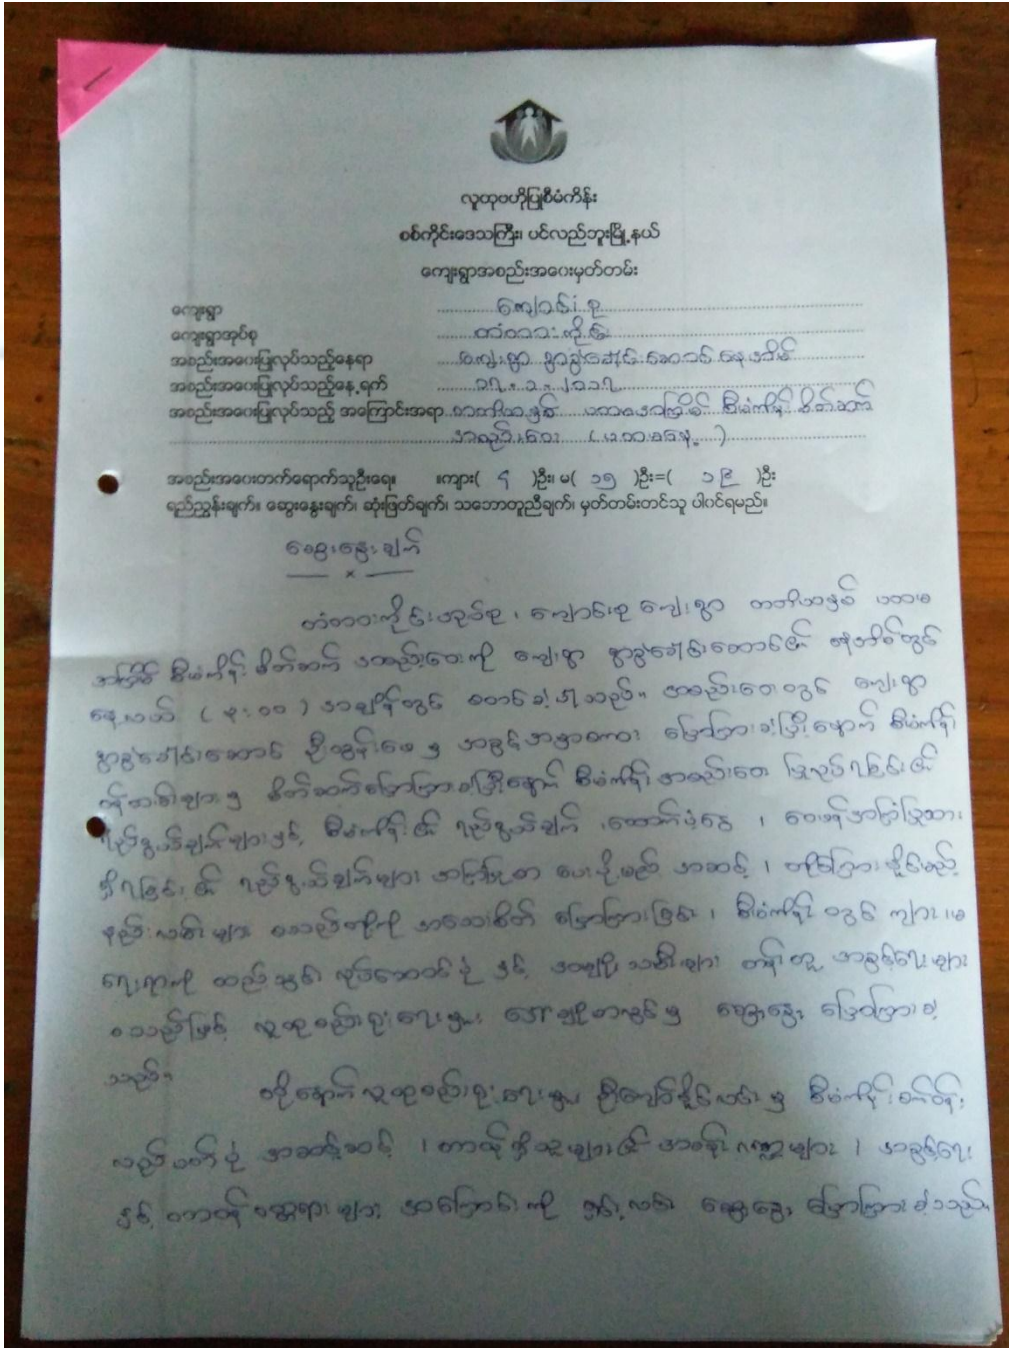 လူထုဗဟိုပြုစီမံကိန်း
စစ်ကိုင်းဒေသကြီး၊ ပင်လည်ဘူးမြို့နယ်
ကျေးရွာအစည်းအဝေးမှတ်တမ်း
ကျေးရွာ ကျောင်းစု
ကျေးရွာအုပ်စု တံတားကိုင်း
အစည်းအဝေးပြုလုပ်သည့်နေရာ ကျေးရွာ ရာခွဲခေါင်းဆောင် နေအိမ်
အစည်းအဝေးပြုလုပ်သည့်နေ့ရက်
အစည်းအဝေးပြုလုပ်သည့် အကြောင်းအရာ တတိယနှစ် ပထမအကြိမ် စီမံကိန်း မိတ်ဆက်
အစည်းအဝေး
အစည်းအဝေးတက်ရောက်သူဦးရေ။ ကျား( ၄ )ဦး၊ မ( ၁၅ )ဦး=( ၁၉ )ဦး
ရည်ညွှန်းချက်၊ ဆွေးနွေးချက်၊ ဆုံးဖြတ်ချက်၊ သဘောတူညီချက်၊ မှတ်တမ်းတင်သူ ပါဝင်ရမည်။
ဆွေးနွေးချက်
တံတားကိုင်းအုပ်စု ၊ ကျောင်းစု ကျေးရွာ တတိယနှစ် ပထမ
အကြိမ် စီမံကိန်း မိတ်ဆက် အစည်းအဝေးကို ကျေးရွာ ရာခွဲခေါင်းဆောင်၏ နေအိမ်တွင်
နေ့လယ် အချိန်တွင် စတင်ခဲ့ပါသည်။ အစည်းအဝေးတွင် ကျေးရွာ
ရာခွဲခေါင်းဆောင် မှ အဖွင့်အမှာစကား ပြောကြားခဲ့ပြီးနောက် စီမံကိန်း
ဝန်ထမ်းများမှ မိတ်ဆက်ပြောကြားခဲ့ပြီးနောက် စီမံကိန်း အစည်းအဝေး ပြုလုပ်ရခြင်း၏
ရည်ရွယ်ချက်များနှင့် စီမံကိန်း၏ ရည်ရွယ်ချက် ၊ ထောက်ပံ့ငွေ ၊ ဝေဖန်အကြံပြုထား
ရှိရခြင်း၏ ရည်ရွယ်ချက်များ အကြံပြုစာ ပေးပို့မည့် အဆင့် ၊ တိုင်ကြားနိုင်မည့်
နည်းလမ်းများ စသည်တို့ကို အသေးစိတ် ပြောကြားခြင်း ၊ စီမံကိန်း တွင် ကျား ၊ မ
ရေးရာကို ထည့်သွင်း လုပ်ဆောင်ပုံ နှင့် အမျိုးသမီးများ တန်းတူ အခွင့်ရေးများ
စသည်ဖြင့် လူထုစည်းရုံးရေးမှူး မှ ဆွေးနွေး ပြောကြားခဲ့
သည်။
ထို့နောက် လူထုစည်းရုံးရေးမှူး ဦးကျော်နိုင်လင်း မှ စီမံကိန်းစက်ဝန်း
လည်ပတ်ပုံ အဆင့်ဆင့် ၊ တာဝန်ရှိသူများ၏ အခန်းကဏ္ဍများ ၊ အခွင့်ရေး
နှင့် တာဝန် ဝတ္တရားများ အကြောင်းကို ရှင်းလင်း ဆွေးနွေး ပြောကြားခဲ့သည်။